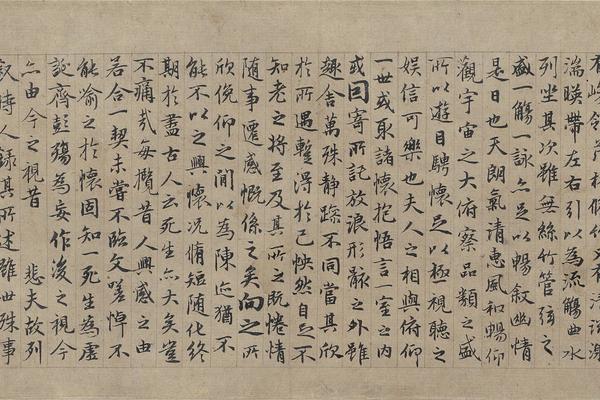 有峻領茂林脩竹又有清流激
湍暎帶左右引以為流觴曲水
列坐其次雖無絲竹管弦之
盛一觴一詠亦足以暢敘幽情
是日也天朗氣清惠風和暢仰
觀宇宙之大俯察品類之盛
所以遊目騁懷足以極視聽之
娛信可樂也夫人之相與俯仰
一世或取諸懷抱悟言一室之內
或因寄所託放浪形骸之外雖
趣舍萬殊靜躁不同當其欣
於所遇蹔得於己怏然自足不
知老之將至及其所之既惓情
隨事遷感慨係之矣向之所
欣俛仰之閒以為陳迹猶不
能不以之興懷況脩短隨化終
期於盡古人云死生亦大矣豈
不痛哉每攬昔人興感之由
若合一契未嘗不臨文嗟悼不
能喻之於懷固知一死生為虛
誕齊彭殤為妄作後之視今
亦由今之視昔 悲夫故列
敘時人錄其所述雖世殊事